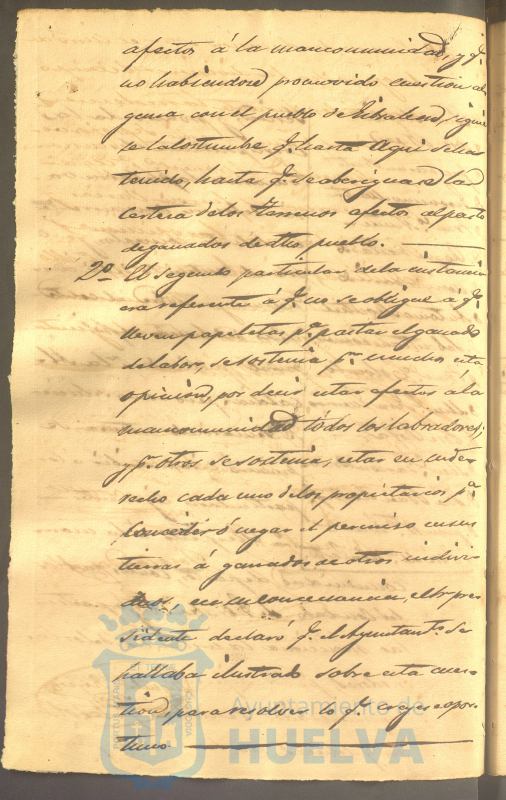 afectos á la mancomunidad, y q.
no habiendose promovido cuestion al
guna con el pueblo de Gibraleon, siguie
se la costumbre, q. hasta aqui se ha
tenido, hasta q. se aberiguase la
certeza de los terrenos afectos al pasto
de ganados de dho pueblo.
2º El segundo particular de la instancia
era referente á q. no se obligue á q.
lleven papeletas p.ª pastar el ganado
de labor, se sostenia p.r muchos esta
opinion, por decir estar afectos á la
mancomunidad tódos los labradores;
y p.r otros se sostenia, estar en su dere
recho cada uno de los propietarios p.ª
conceder ó negar el permiso en sus
tierras á ganados de otros indivi
duos, en su consecuencia, el Sr. pre
sidente declaró q. el Ayuntam.to se
hallaba ilustrado sobre esta cues
tion, para resolver lo q. creyese opor
tuno
Ayuntamiento de
HUELVA